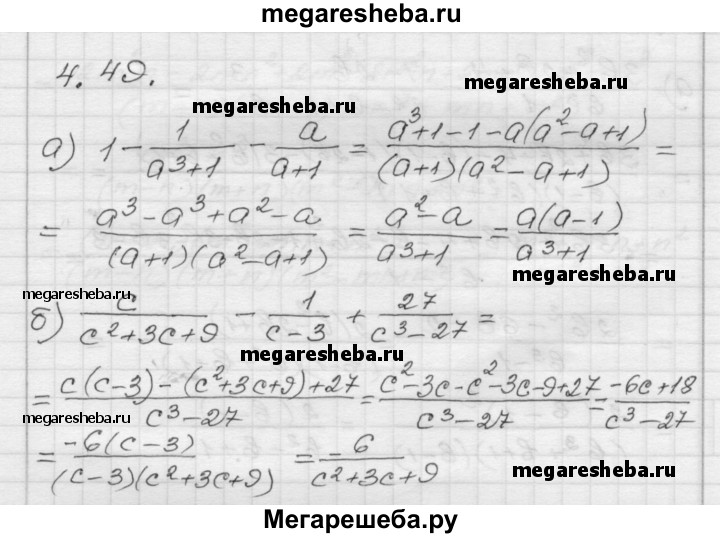 megaresheba.ru
4.49.
megaresheba.ru
megaresheba.ru
а) 1 - 1/(a³+1) - a/(a+1) = (a³+1-1-a(a²-a+1))/((a+1)(a²-a+1)) =
= (a³-a³+a²-a)/((a+1)(a²-a+1)) = (a²-a)/(a³+1) = a(a-1)/(a³+1)
megaresheba.ru
megaresheba.ru
б) c/(c²+3c+9) - 1/(c-3) + 27/(c³-27) =
megaresheba.ru
= (c(c-3)-(c²+3c+9)+27)/(c³-27) = (c²-3c-c²-3c-9+27)/(c³-27) = (-6c+18)/(c³-27)
megaresheba.ru
= -6(c-3)/((c-3)(c²+3c+9)) = -6/(c²+3c+9)
megaresheba.ru
Мегарешеба.ру